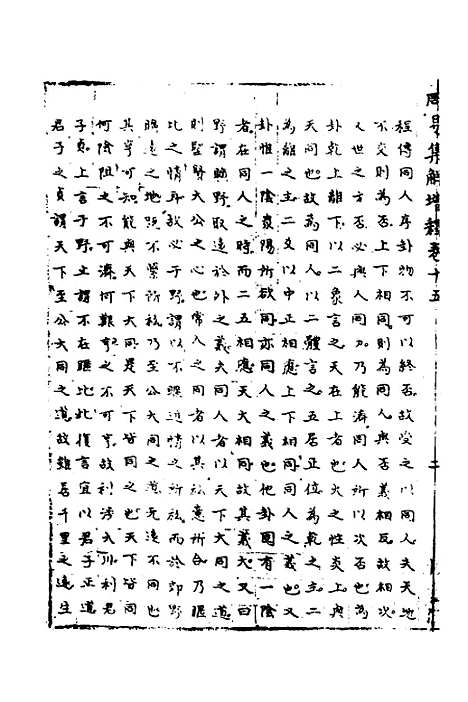 周易集解增釋卷十五
程傳同人序卦物不可以終否故受之以同人夫天地
不交則為否上下相同則為同人與否義相反故相次
人世之方否必與人同力乃能濟同人所以次否也為
卦乾上離下以二象言之天在上者也火之性炎上與
天同也故為同人以二體言之五居正位為乾之主二
為離之主二爻以中正相應上下相同同人之義也又
卦惟一陰衆陽所欲同亦同人之義也他卦固有一陰
者在同人之時而二五相應天火相同故其義大又曰
野謂曠野取遠於外之義夫同人者以天下大同之道
則聖賢大公之心也常人之同者以其私意所合乃暱
比之情耳故必于野謂以不暱近情之所私而於郊野
曠遠之地既不繫所私乃至公大同之道无遠不同也
其亨可知能與天下大同是天下皆同之也天下皆同
何險阻之不可濟何艱之不可亨故利涉大川利君
子貞上言于野止謂不在暱比此復言宜以君子正道
君子之貞謂天下至公大同之道故雖居千里之遠生
二